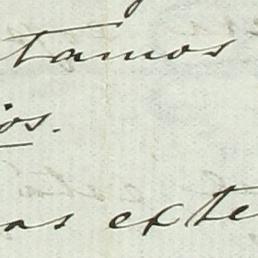 tamos
os.
as exte